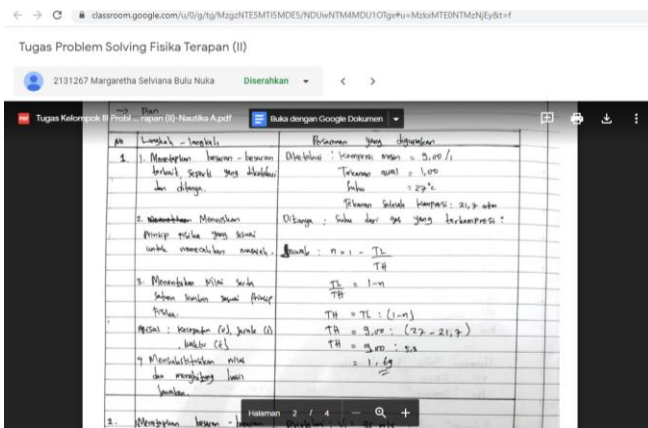 classroom.google.com/u/0/g/tg/MzgzNTE5MTI5MDE5/NDUwNTM4MDU1OTgx#u=MzkxMTE0NTMzNjEy&t=f
Tugas Problem Solving Fisika Terapan (II)
2131267 Margaretha Selviana Bulu Nuka Diserahkan
PDF Tugas Kelompok III Probl ... rapan (II)-Nautika A.pdf
Buka dengan Google Dokumen
→ Plan
No Langkah - langkah Persamaan yang digunakan
1. 1. Menetapkan besaran - besaran
terkait, seperti yang diketahui
dan ditanya.
Diketahui : kompresi mesin = 9,00/1
Tekanan awal = 1,00
Suhu = 27°c
Tekanan Setelah kompresi : 21,7 atm
2. Menuliskan
Prinsip fisika yang sesuai
untuk memecahkan masalah.
Ditanya : Suhu dari gas yang terkompresi :
Jawab : n = 1 - TL
TH
3. Menentukan Nilai serta
Satuan simbol sesuai Prinsip
Fisika.
Misal : kecepatan (v), Jarak (s)
, waktu (t)
TL = 1-n
TH
TH = TL : (1-n)
TH = 9,00 : (27 - 21,7)
TH = 9,00 : 5,3
= 1,69
4 Mensubstitusikan nilai
dan menghitung hasil
Jawaban.
Halaman 2 / 4
2. Menetapkan besaran - besaran